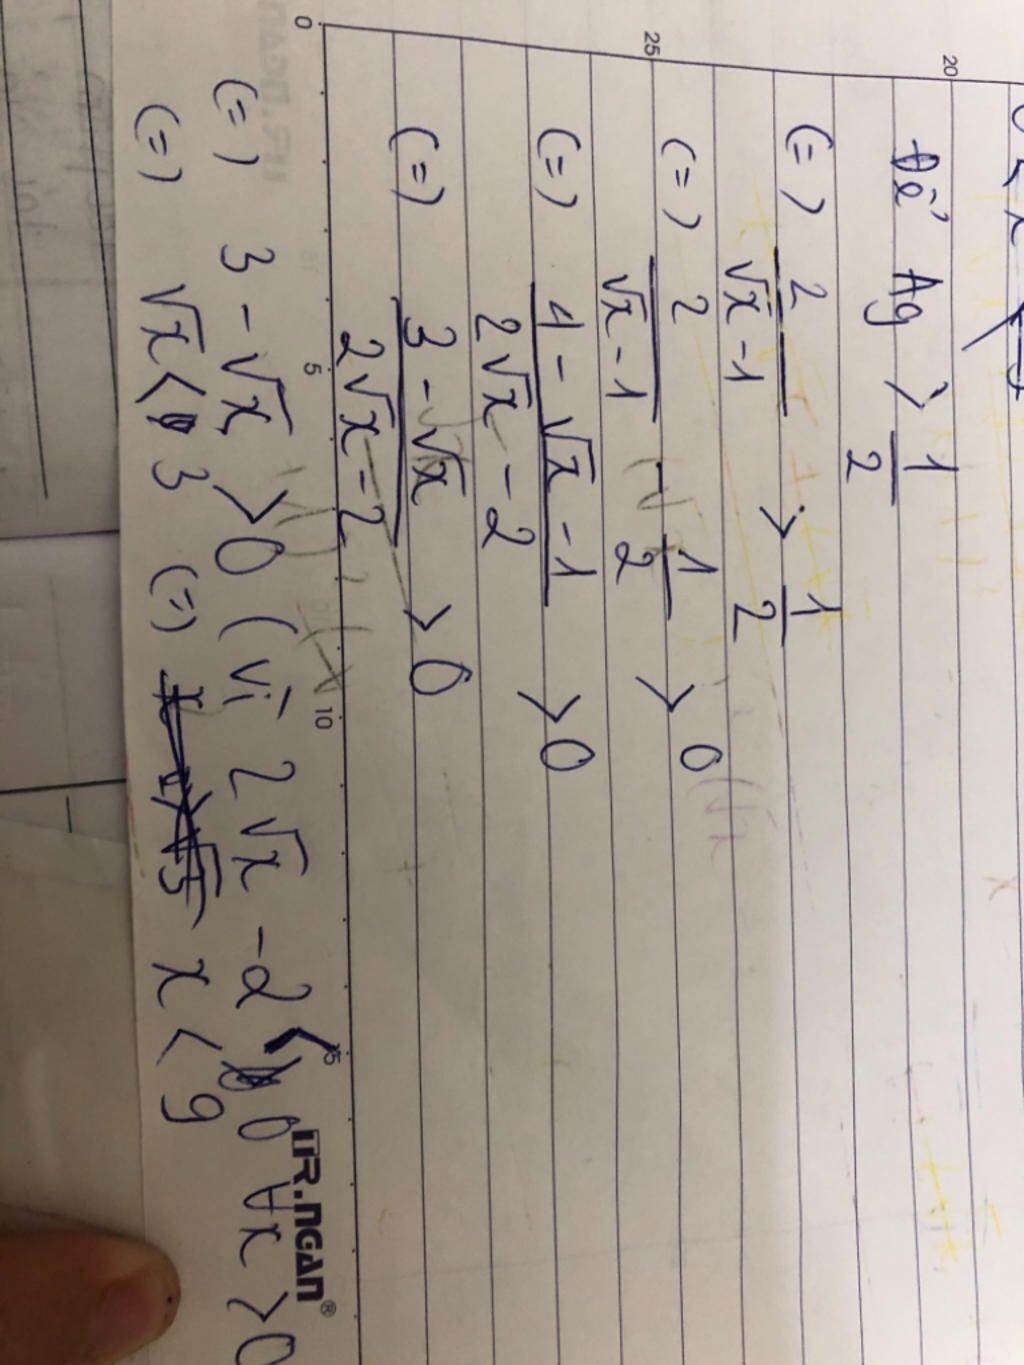 Để Ag > 1/2
(=) 2/(√x - 1) > 1/2
(=) 2/(√x - 1) - 1/2 > 0
(=) (4 - √x - 1)/(2√x - 2) > 0
(=) (3 - √x)/(2√x - 2) > 0
(=) 3 - √x > 0 (vì 2√x - 2 < 0 ∀x > 0
(=) √x < 3 (=) x < 9
20
25
0
5
10
15
TR.NGAN®